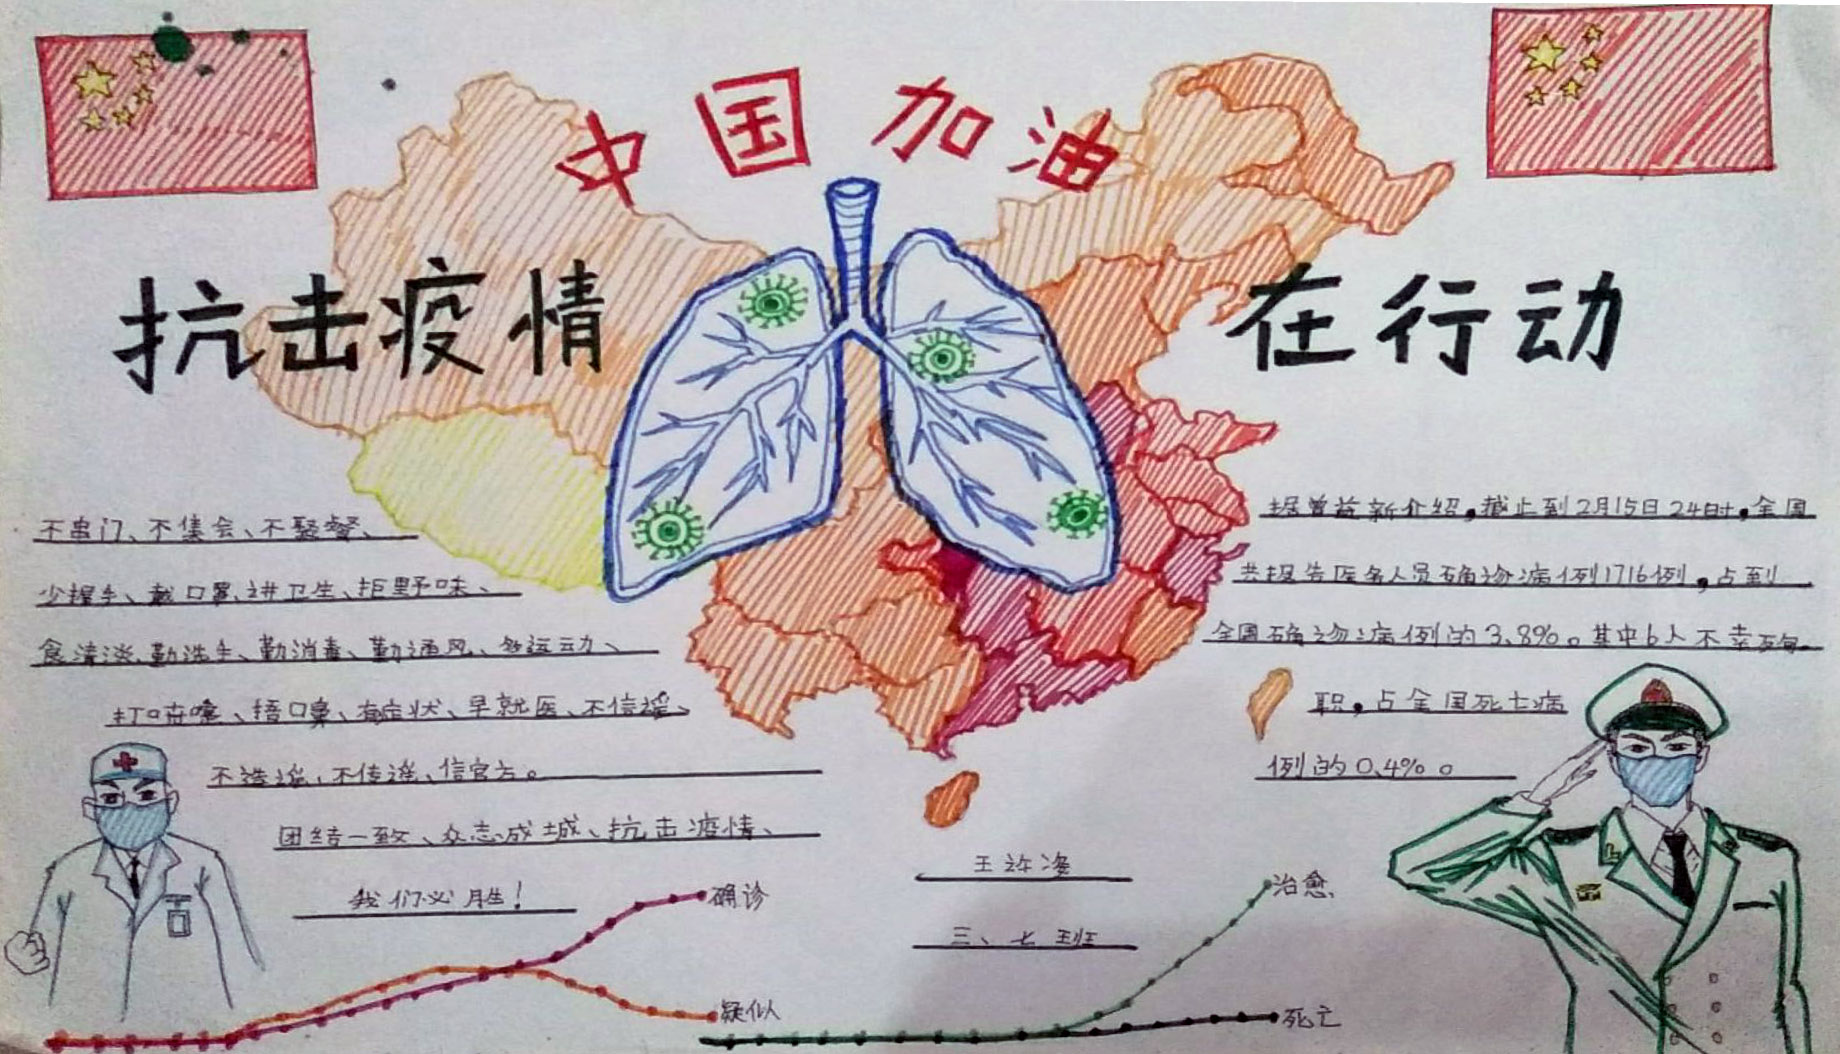 中国加油
抗击疫情
在行动
不串门、不集会、不聚餐、
少握手、戴口罩、讲卫生、拒野味、
食清淡、勤洗手、勤消毒、勤通风、多运动、
打喷嚏、捂口鼻、有症状、早就医、不信谣、
不造谣、不传谣、信官方。
团结一致、众志成城、抗击疫情、
我们必胜!
据曾益新介绍,截止到2月15日24时,全国
共报告医务人员确诊病例1716例,占到
全国确诊病例的3.8%。其中6人不幸殉
职,占全国死亡病
例的0.4%。
王
三、七班
确诊
疑似
治愈
死亡